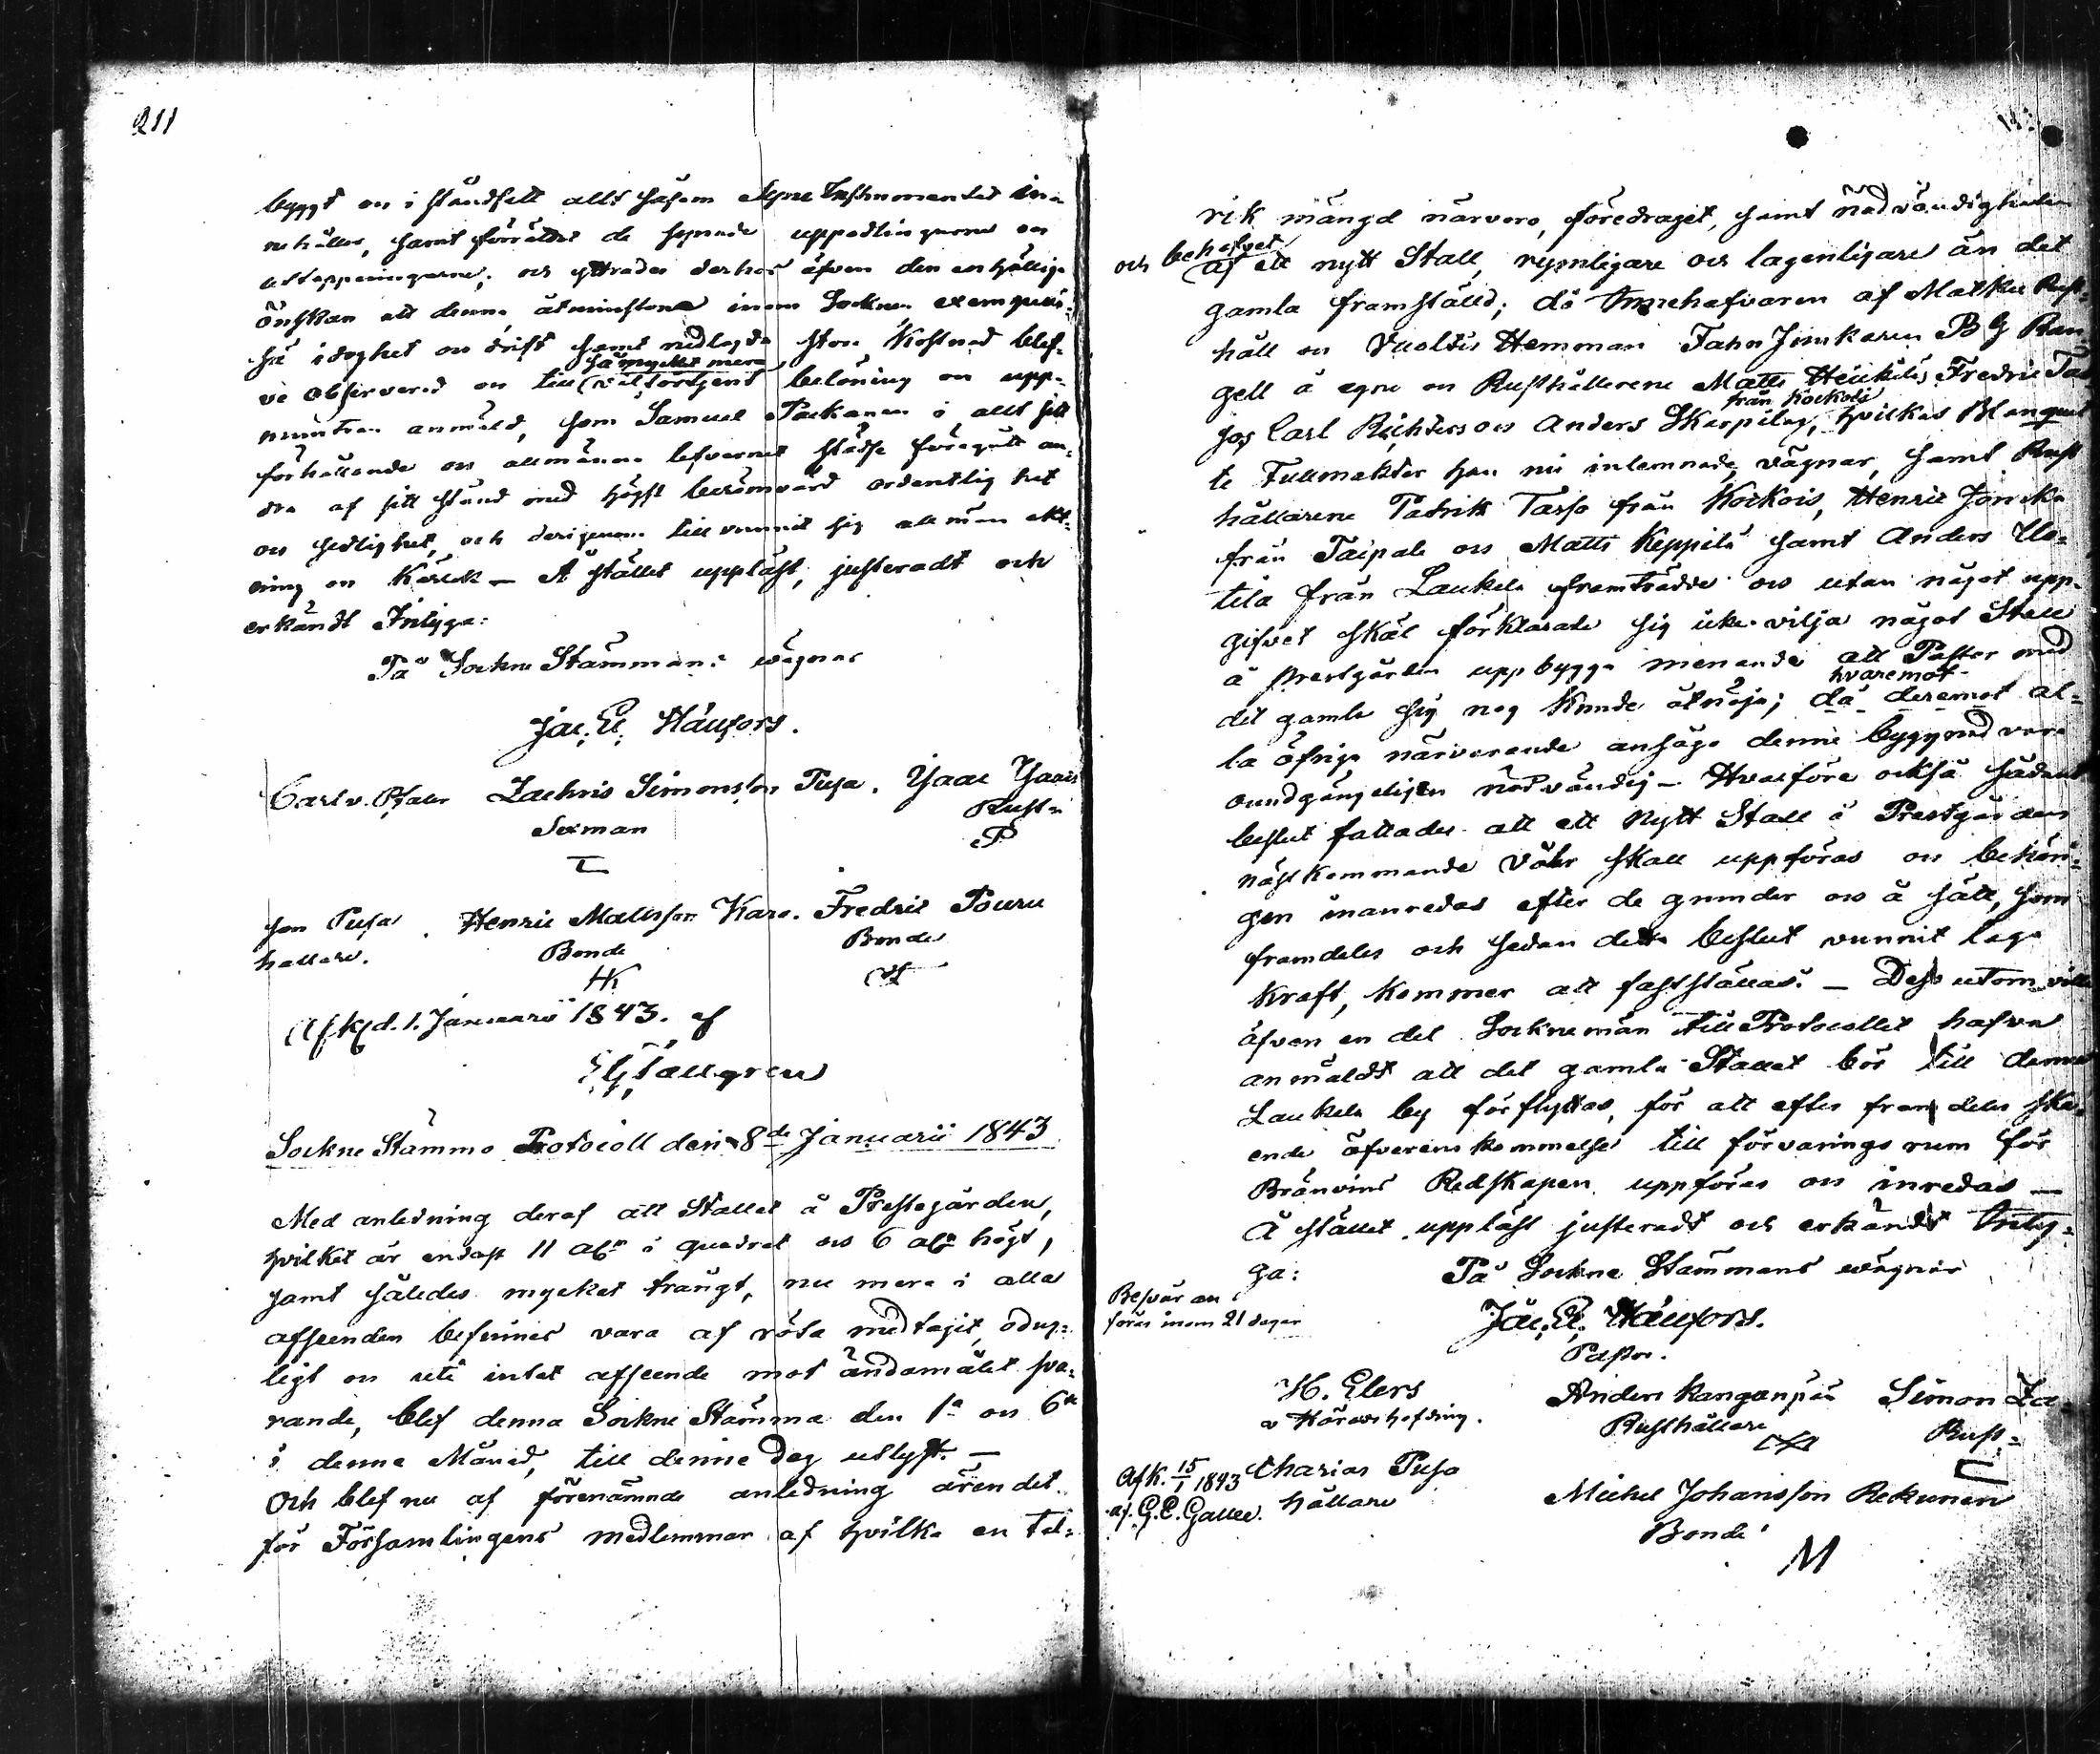 211
byggt och i ståndsatt allt såsom Syne Instrumentet in-
nehåller, samt förrättat de synade uppodlingarne och
uttappningarne; och yttrades derhos äfven den enhällige
önskan att denna åtminstone inom Socknen exempellö-
sa idoghet och drift samt nedlagda stora Kostnad blef-
så mycket mera
ve observerad och till välförtjent belöning och upp-
muntran anmäld, som Samuel Paekanen i allt sitt
förhållande och allmänna lefvernet städse föregått an-
dra af sitt stånd med högst berömvärd ordentlighet
och sedlighet, och derigenom till vunnit sig allmän akt-
ning och Kärlek — A stället uppläst, justeradt och
erkändt Intyga:
På Sockne Stämmans wägnar
Jac. El. Häufors.
Carl v. Pfaler Zachris Simonsson Pusa. Isaac Isaacs
Sexman Rust-
P
son Pusa. Henric Mattsson Karo. Fredric Pouru
hållare. Bonde Bonde
HK
Afk d. 1. Januarii 1843. af
G Tallgren
Sockne Stämmo Protocoll den 8de Januarii 1843
Med anledning deraf att Stallet å Prestegården,
hvilket är endast 11 aln i quadrat och 6 aln högt,
samt således mycket trångt, nu mera i alla
afseenden befinnes vara af röta medtagit, odug-
ligt och uti intet afseende mot ändamålet sva-
rande, blef denna Sockne Stämma den 1a och 6te
i denne Månad, till denne dag utlyst. —
Och blef nu af förenämnde anledning ärendet
för Församlingens medlemmar af hvilka en tal-
rik mängd närvoro, föredraget, samt nödvändigheten
behofvet
och af ett nytt Stall, rymligare och lagenligare än det
gamla framställd; då Innehafvaren af Mattila Rust-
håll och Vuoltis Hemman Fahn Junkaren B G Ran-
gell å egne och Rusthållarene Matts Heikkilä, Fredric Tas
från Kockois
sos Carl Richters och Anders Skarpilas, hvilkas Blanquet
te Fullmakter han nu inlemnade, vägnar, samt Rust
hållarene Patrik Tasso från Kockois, Henric Joncka
från Taipale och Matts Keppilä samt Anders Uo-
tila från Laukela framträdde och utan något upp-
gifvet skäl förklarade sig icke vilja något Stall
å prestgården uppbygga menande att Pastor med
hvaremot
det gamla sig nog kunde åtnöja; då deremot al-
la öfriga närvarande ansågo denne byggnad vara
oundgängeligen nödvändig — Hvarföre också sådant
beslut fattades att ett Nytt Stall å Prestgården
nästkommande Vår skall uppföras och behöri-
gen inanredas efter de grunder och å sätt, som
framdeles och sedan detta beslut vunnit laga
kraft, kommer att fastställas. — Dess utom ville
äfven en del Sockneman till Protocollet hafva
anmäldt att det gamla Stallet bör till denna
Laukela by förflyttas, för att efter framdeles ske-
ende öfverenskommelse till förvarings rum för
Bränvins Redskapen uppföras och inredas —
Å stället uppläst justeradt och erkändt Inty-
ga: På Sockne Stämmans wägnar
Besvär an
föres inom 21 dagar
Jac. El. Häufors.
Pastor.
H. Elers Anders Kanganpää Simon Za-
v Häradshöfding. Rusthållare Rust-
Afk. 15/1 1843 charias Pusa
af. G. E. Galler. hållare
Michel Johansson Rekunen
Bonde
M